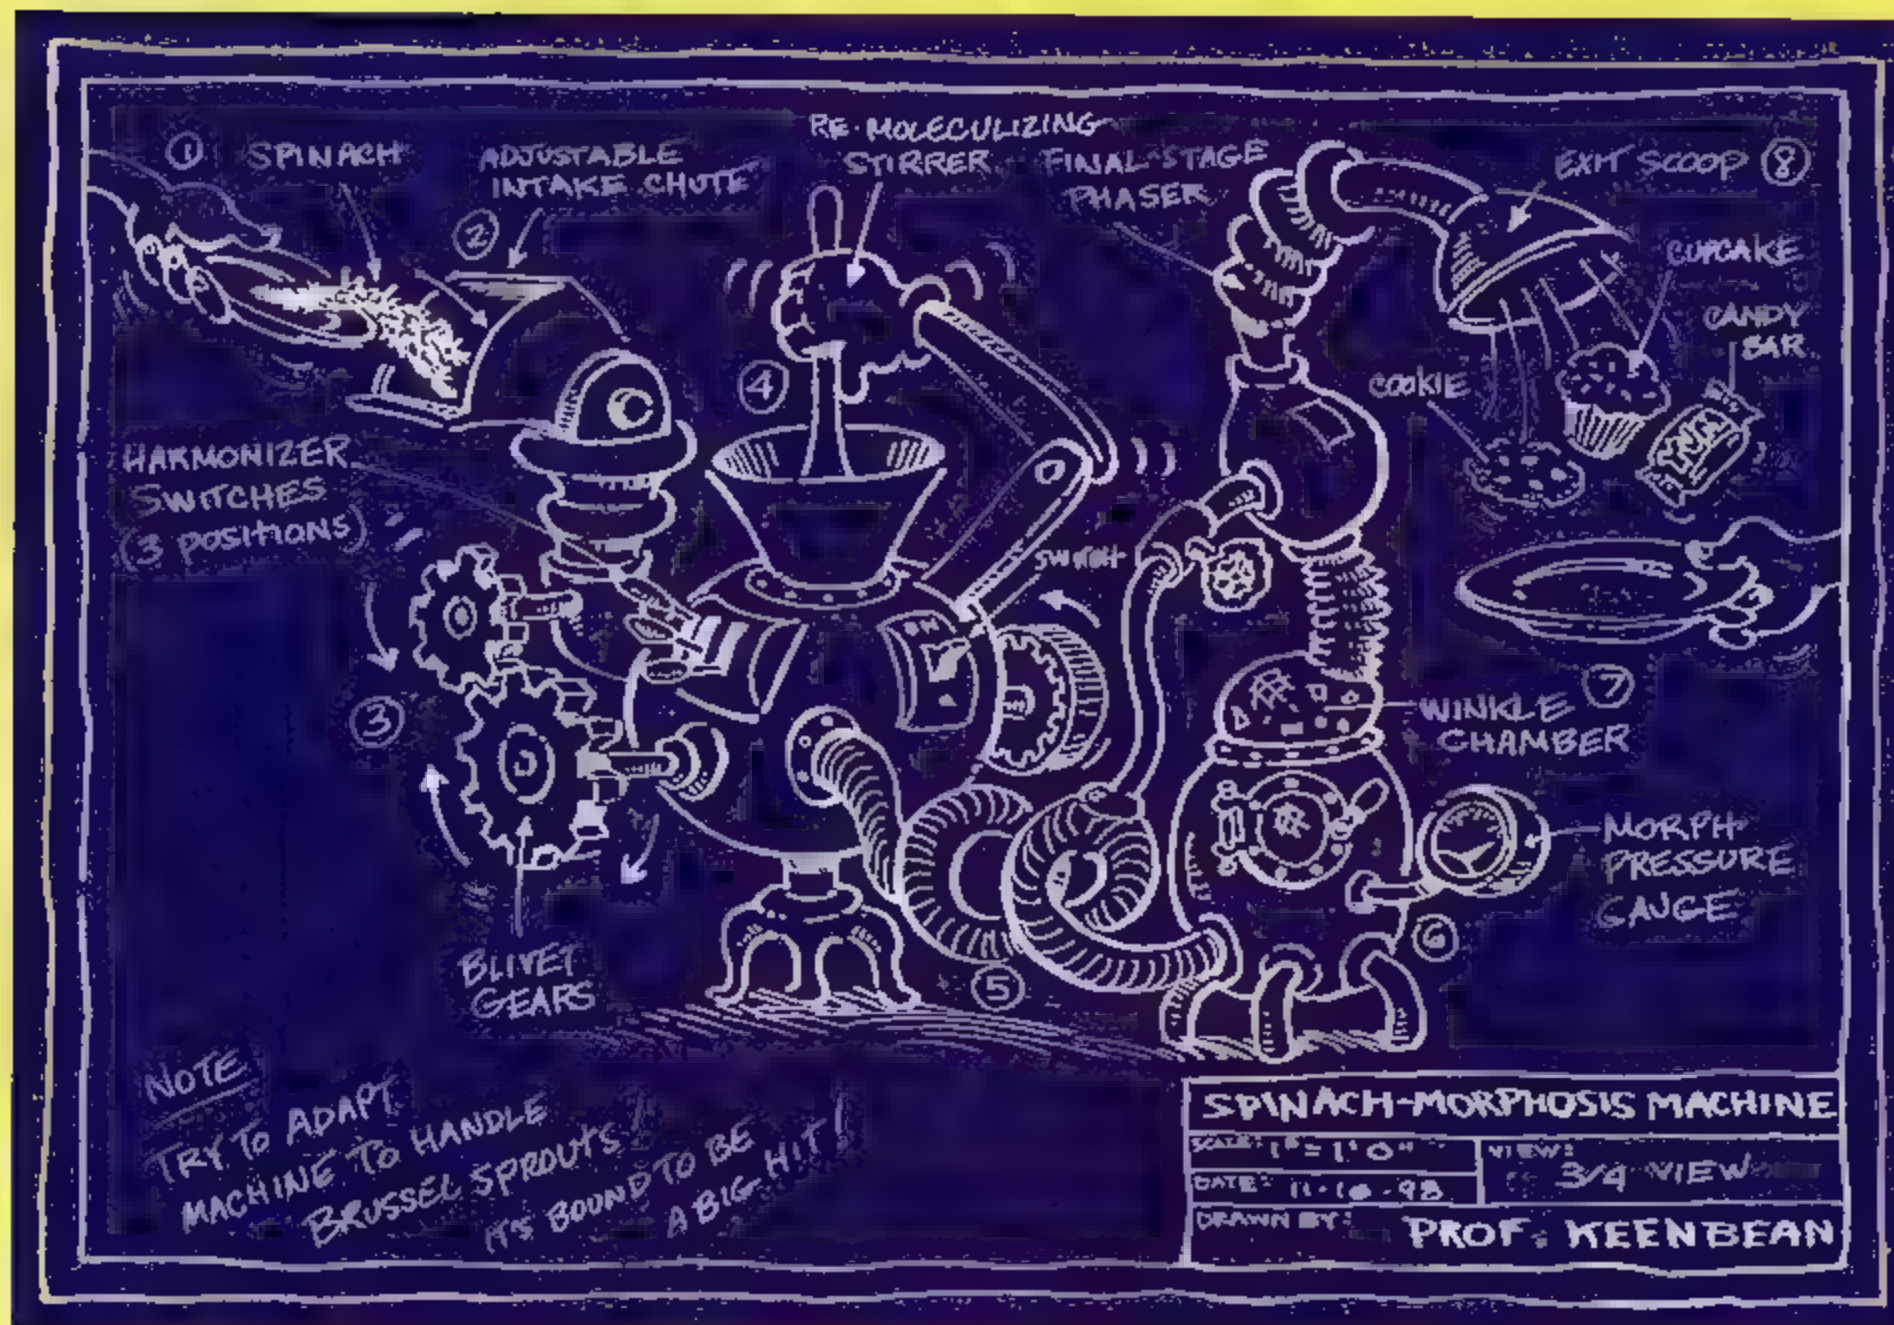 ① SPINACH
② ADJUSTABLE
INTAKE CHUTE
RE-MOLECULIZING
STIRRER
FINAL-STAGE
PHASER
EXIT SCOOP ⑧
CUPCAKE
CANDY
BAR
COOKIE
④
HARMONIZER
SWITCHES
(3 POSITIONS)
SWITCH
③
⑦
WINKLE
CHAMBER
MORPH
PRESSURE
GAUGE
⑥
⑤
BLIVET
GEARS
NOTE
TRY TO ADAPT
MACHINE TO HANDLE
BRUSSEL SPROUTS!
IT'S BOUND TO BE
A BIG HIT!
SPINACH-MORPHOSIS MACHINE
SCALE: 1" = 1' 0"
VIEW:
3/4 VIEW
DATE: 11-16-93
DRAWN BY: PROF. KEENBEAN